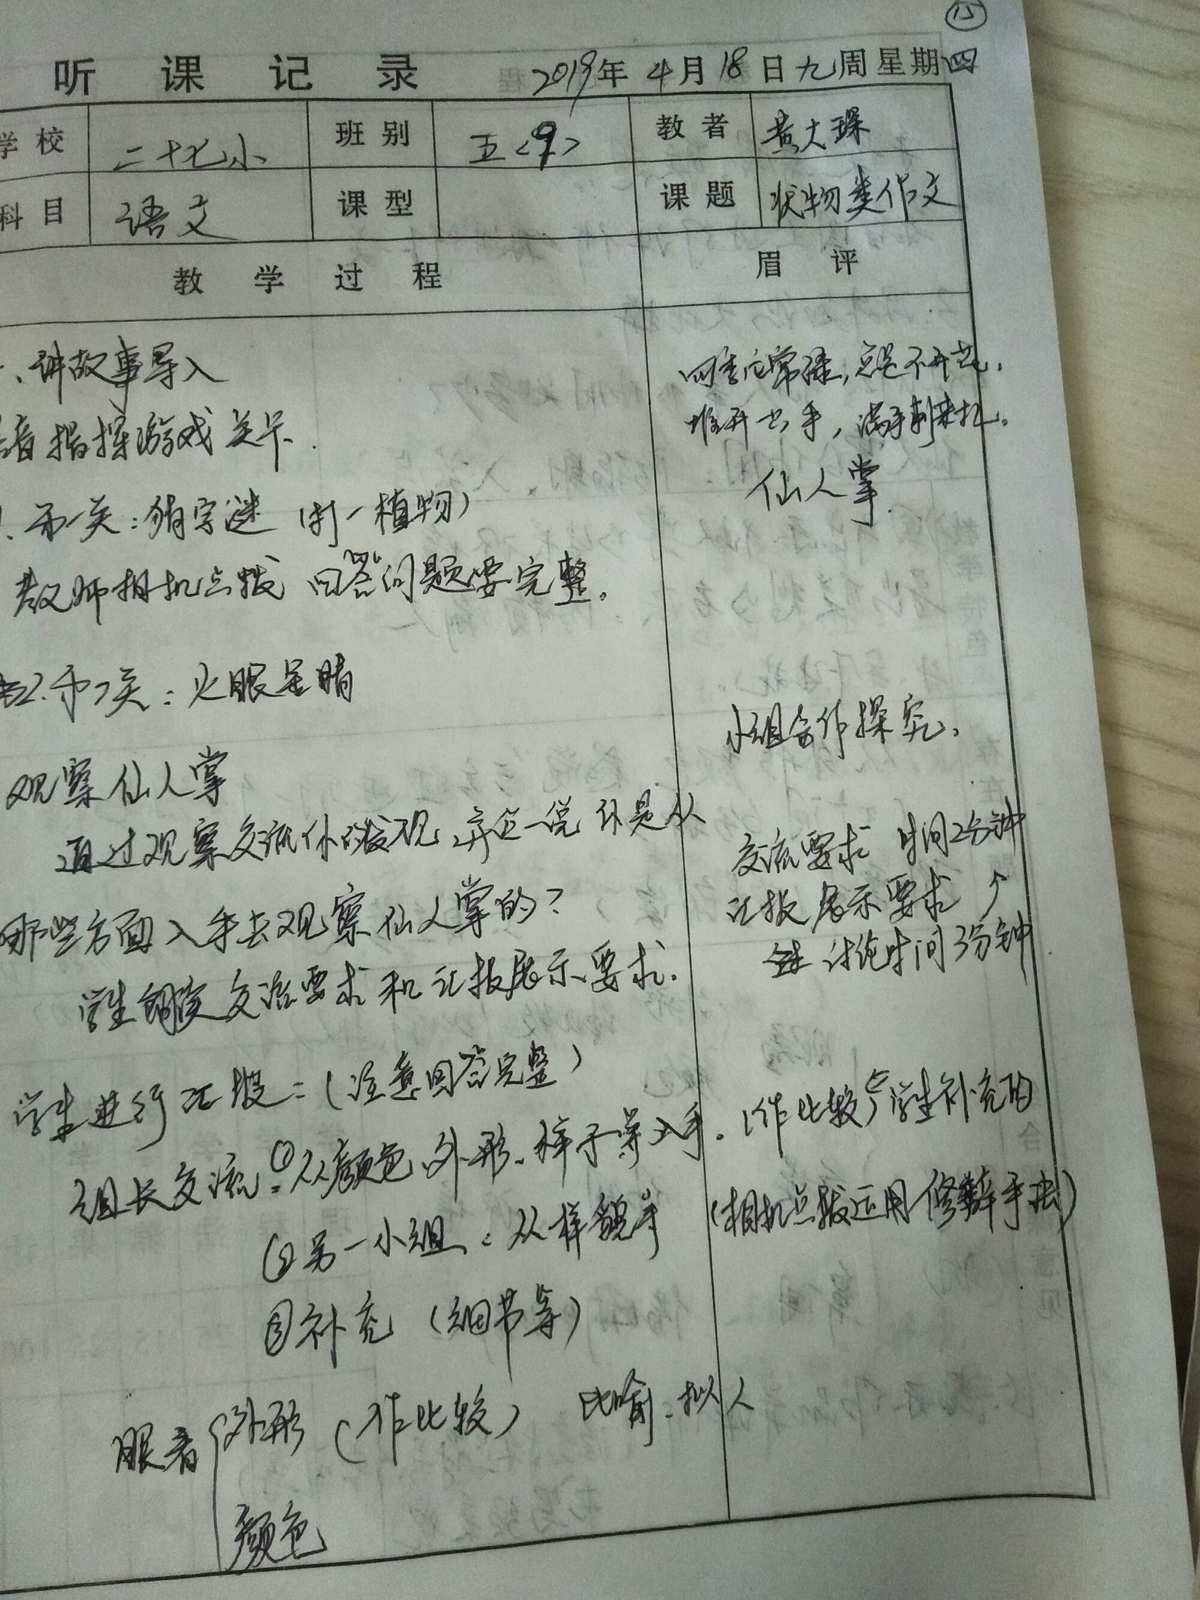 15
听课记录 2019年4月18日九周星期四
学校 二十七小 班别 五<9> 教者 黄大琛
科目 语文 课型 课题 状物类作文
教学过程 眉评
一、讲故事导入
四季它常绿，总是不开花，
语指探游戏关卡.
堆开 手，满手刺来扎。
仙人掌
1. 第一关：猜字谜（打一植物）
教师相机点拨 回答问题要完整。
2. 第二关：火眼金睛
小组合作探究。
观察仙人掌
通过观察交流你的发现，并说一说你是从
交流要求 时间2分钟
哪些方面入手去观察仙人掌的？
汇报展示要求 ↑
讨论时间3分钟
学生朗读交流要求和汇报展示要求.
学生进行汇报：（注意回答完整）
组长交流：①从颜色、外形、样子等入手.（作比较）学生补充的
②另一小组：从样貌手（相机点拨运用修辞手法）
③补充（细节等）
眼看 外形（作比较） 比喻、拟人
颜色